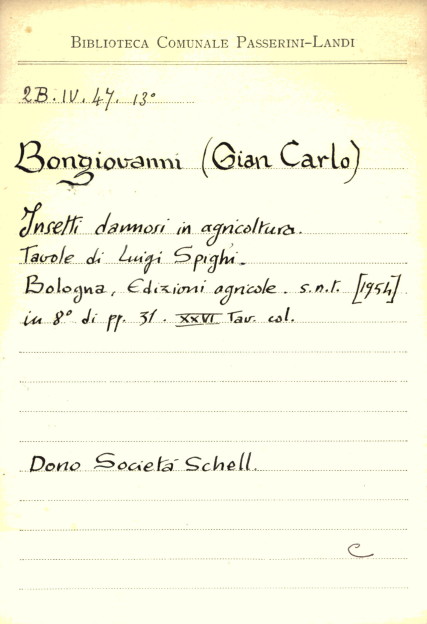 BIBLIOTECA COMUNALE PASSERINI-LANDI
2B. IV. 47. 13°
Bongiovanni (Gian Carlo)
Insetti dannosi in agricoltura.
Tavole di Luigi Spighi.
Bologna, Edizioni agricole. s.n.t. [1954]
in 8° di pp. 31. XXVI Tav. col.
Dono Società Schell.
C